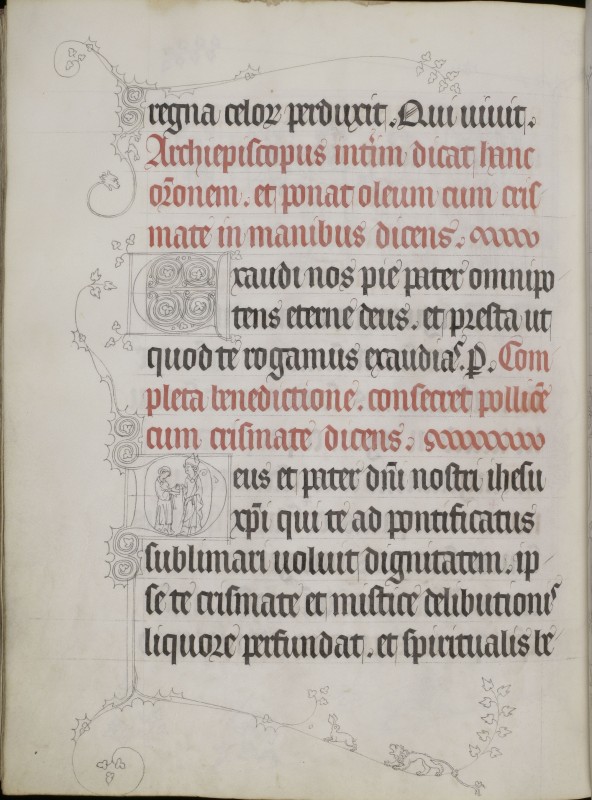 regna celoꝝ perduxit. Qui uiuit.
Archiepiscopus int̾im dicat hanc
or̄onem. et ponat oleum cum cris
mate in manibus dicens.
Exaudi nos pie pater omnipo
tens eterne deus. et presta ut
quod te rogamus exaudias. P. Com
pleta benedictione. consecret pollic̄e
cum crismate dicens.
Deus et pater dn̄i nostri ihesu
xp̄i qui te ad pontificatus
sublimari uoluit dignitatem. ip
se te crismate et mistice delibutionis
liquore perfundat. et spiritualis be